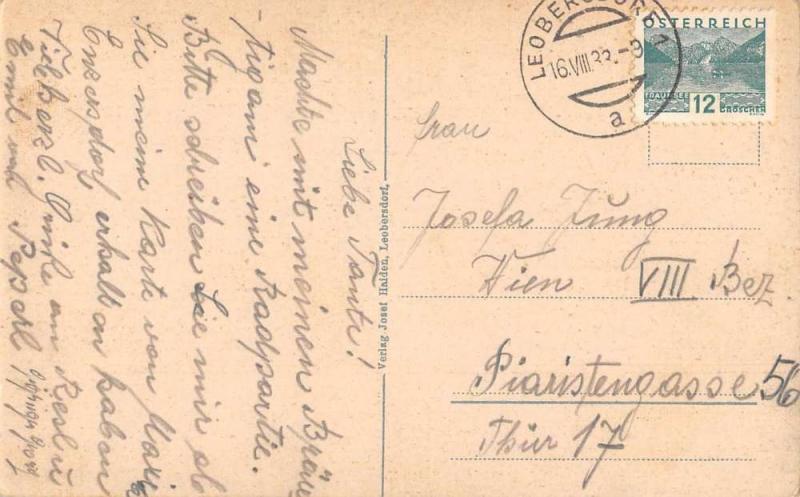 Liebe Tante!
Machte mit meinen Bräu
-tigam eine Radpartie.
Bitte schreiben Sie mir ob
Sie meine Karte von Maria
Enzersdorf erhalten haben
Vielherzl. Grüße an Resl u
Emil und Peperl
Verlag Josef Haiden, Leobersdorf.
LEOBERSDORF 1
16.VIII.33.-9
a
ÖSTERREICH
TRAUNSEE
12 GROSCHEN
Frau
Josefa Jung
Wien VIII Bez.
Piaristengasse 56
Thür 17